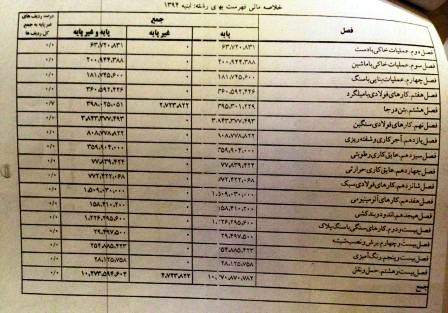 خلاصه مالی فهرست بهای رشته: ابنیه ۱۳۹۴
فصل جمع درصد ردیف های غیرپایه به جمع کل ردیف ها
پایه غیر پایه پایه و غیر پایه
فصل دوم. عملیات خاکی با دست ۶۳,۷۲۰,۸۳۱ ۰ ۶۳,۷۲۰,۸۳۱ ۰/۰
فصل سوم. عملیات خاکی با ماشین ۲۰۰,۹۴۴,۳۸۸ ۰ ۲۰۰,۹۴۴,۳۸۸ ۰/۰
فصل چهارم. عملیات بنایی با سنگ ۱۸۱,۷۴۵,۶۰۰ ۰ ۱۸۱,۷۴۵,۶۰۰ ۰/۰
فصل هفتم. کارهای فولادی با میلگرد ۳۶۰,۵۹۲,۴۲۶ ۰ ۳۶۰,۵۹۲,۴۲۶ ۰/۰
فصل هشتم. بتن درجا ۳۹۵,۳۰۱,۲۲۹ ۲,۷۲۳,۸۲۲ ۳۹۸,۰۲۵,۰۵۱ ۰/۷
فصل نهم. کارهای فولادی سنگین ۳,۸۴۳,۳۷۷,۴۹۳ ۰ ۳,۸۴۳,۳۷۷,۴۹۳ ۰/۰
فصل یازدهم. آجرکاری و شفته ریزی ۸۰۸,۷۷۸,۸۲۲ ۰ ۸۰۸,۷۷۸,۸۲۲ ۰/۰
فصل سیزدهم. عایق کاری رطوبتی ۳۵۹,۹۰۴,۰۰۰ ۰ ۳۵۹,۹۰۴,۰۰۰ ۰/۰
فصل چهاردهم. عایق کاری حرارتی ۷۷,۸۳۹,۴۲۴ ۰ ۷۷,۸۳۹,۴۲۴ ۰/۰
فصل شانزدهم. کارهای فولادی سبک ۷۷۲,۴۲۲,۰۶۸ ۰ ۷۷۲,۴۲۲,۰۶۸ ۰/۰
فصل هفدهم. کارهای آلومینیومی ۱,۵۰۹,۰۳۰,۰۰۰ ۰ ۱,۵۰۹,۰۳۰,۰۰۰ ۰/۰
فصل هیجدهم. اندود و بندکشی ۱۵۸,۴۱۰,۲۰۰ ۰ ۱۵۸,۴۱۰,۲۰۰ ۰/۰
فصل بیست و دوم. کارهای سنگی با سنگ پلاک ۱,۲۲۶,۲۹۵,۶۰۰ ۰ ۱,۲۲۶,۲۹۵,۶۰۰ ۰/۰
فصل بیست و چهارم. برش و نصب شیشه ۲۹,۴۹۷,۵۰۰ ۰ ۲۹,۴۹۷,۵۰۰ ۰/۰
فصل بیست و پنجم. رنگ آمیزی ۲۵۴,۸۸۵,۴۲۳ ۰ ۲۵۴,۸۸۵,۴۲۳ ۰/۰
فصل بیست و هشتم. حمل و نقل ۲۸,۱۲۵,۷۵۸ ۰ ۲۸,۱۲۵,۷۵۸ ۰/۰
جمع ۱۰,۲۷۰,۸۷۰,۷۸۲ ۲,۷۲۳,۸۲۲ ۱۰,۲۷۳,۵۹۴,۶۰۴ ۰/۰